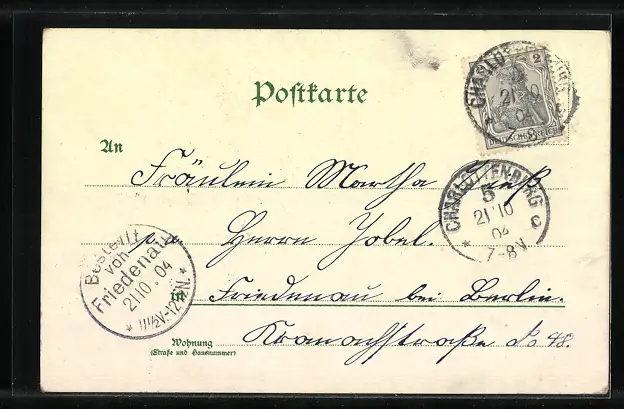 Postkarte
2
DEUTSCHES REICH
CHARLOTTENBURG
21 10
04
8
An
Fräulein Martha
CHARLOTTENBURG
5 c
21 10
04
* 7-8V
p. a. Herrn Zobel.
Bestellt
von
Friedenau
21 10. 04
* 11½V-12½N. *
in Friedenau bei Berlin.
Wohnung
(Straße und Hausnummer)
Kranachstraße No 48.